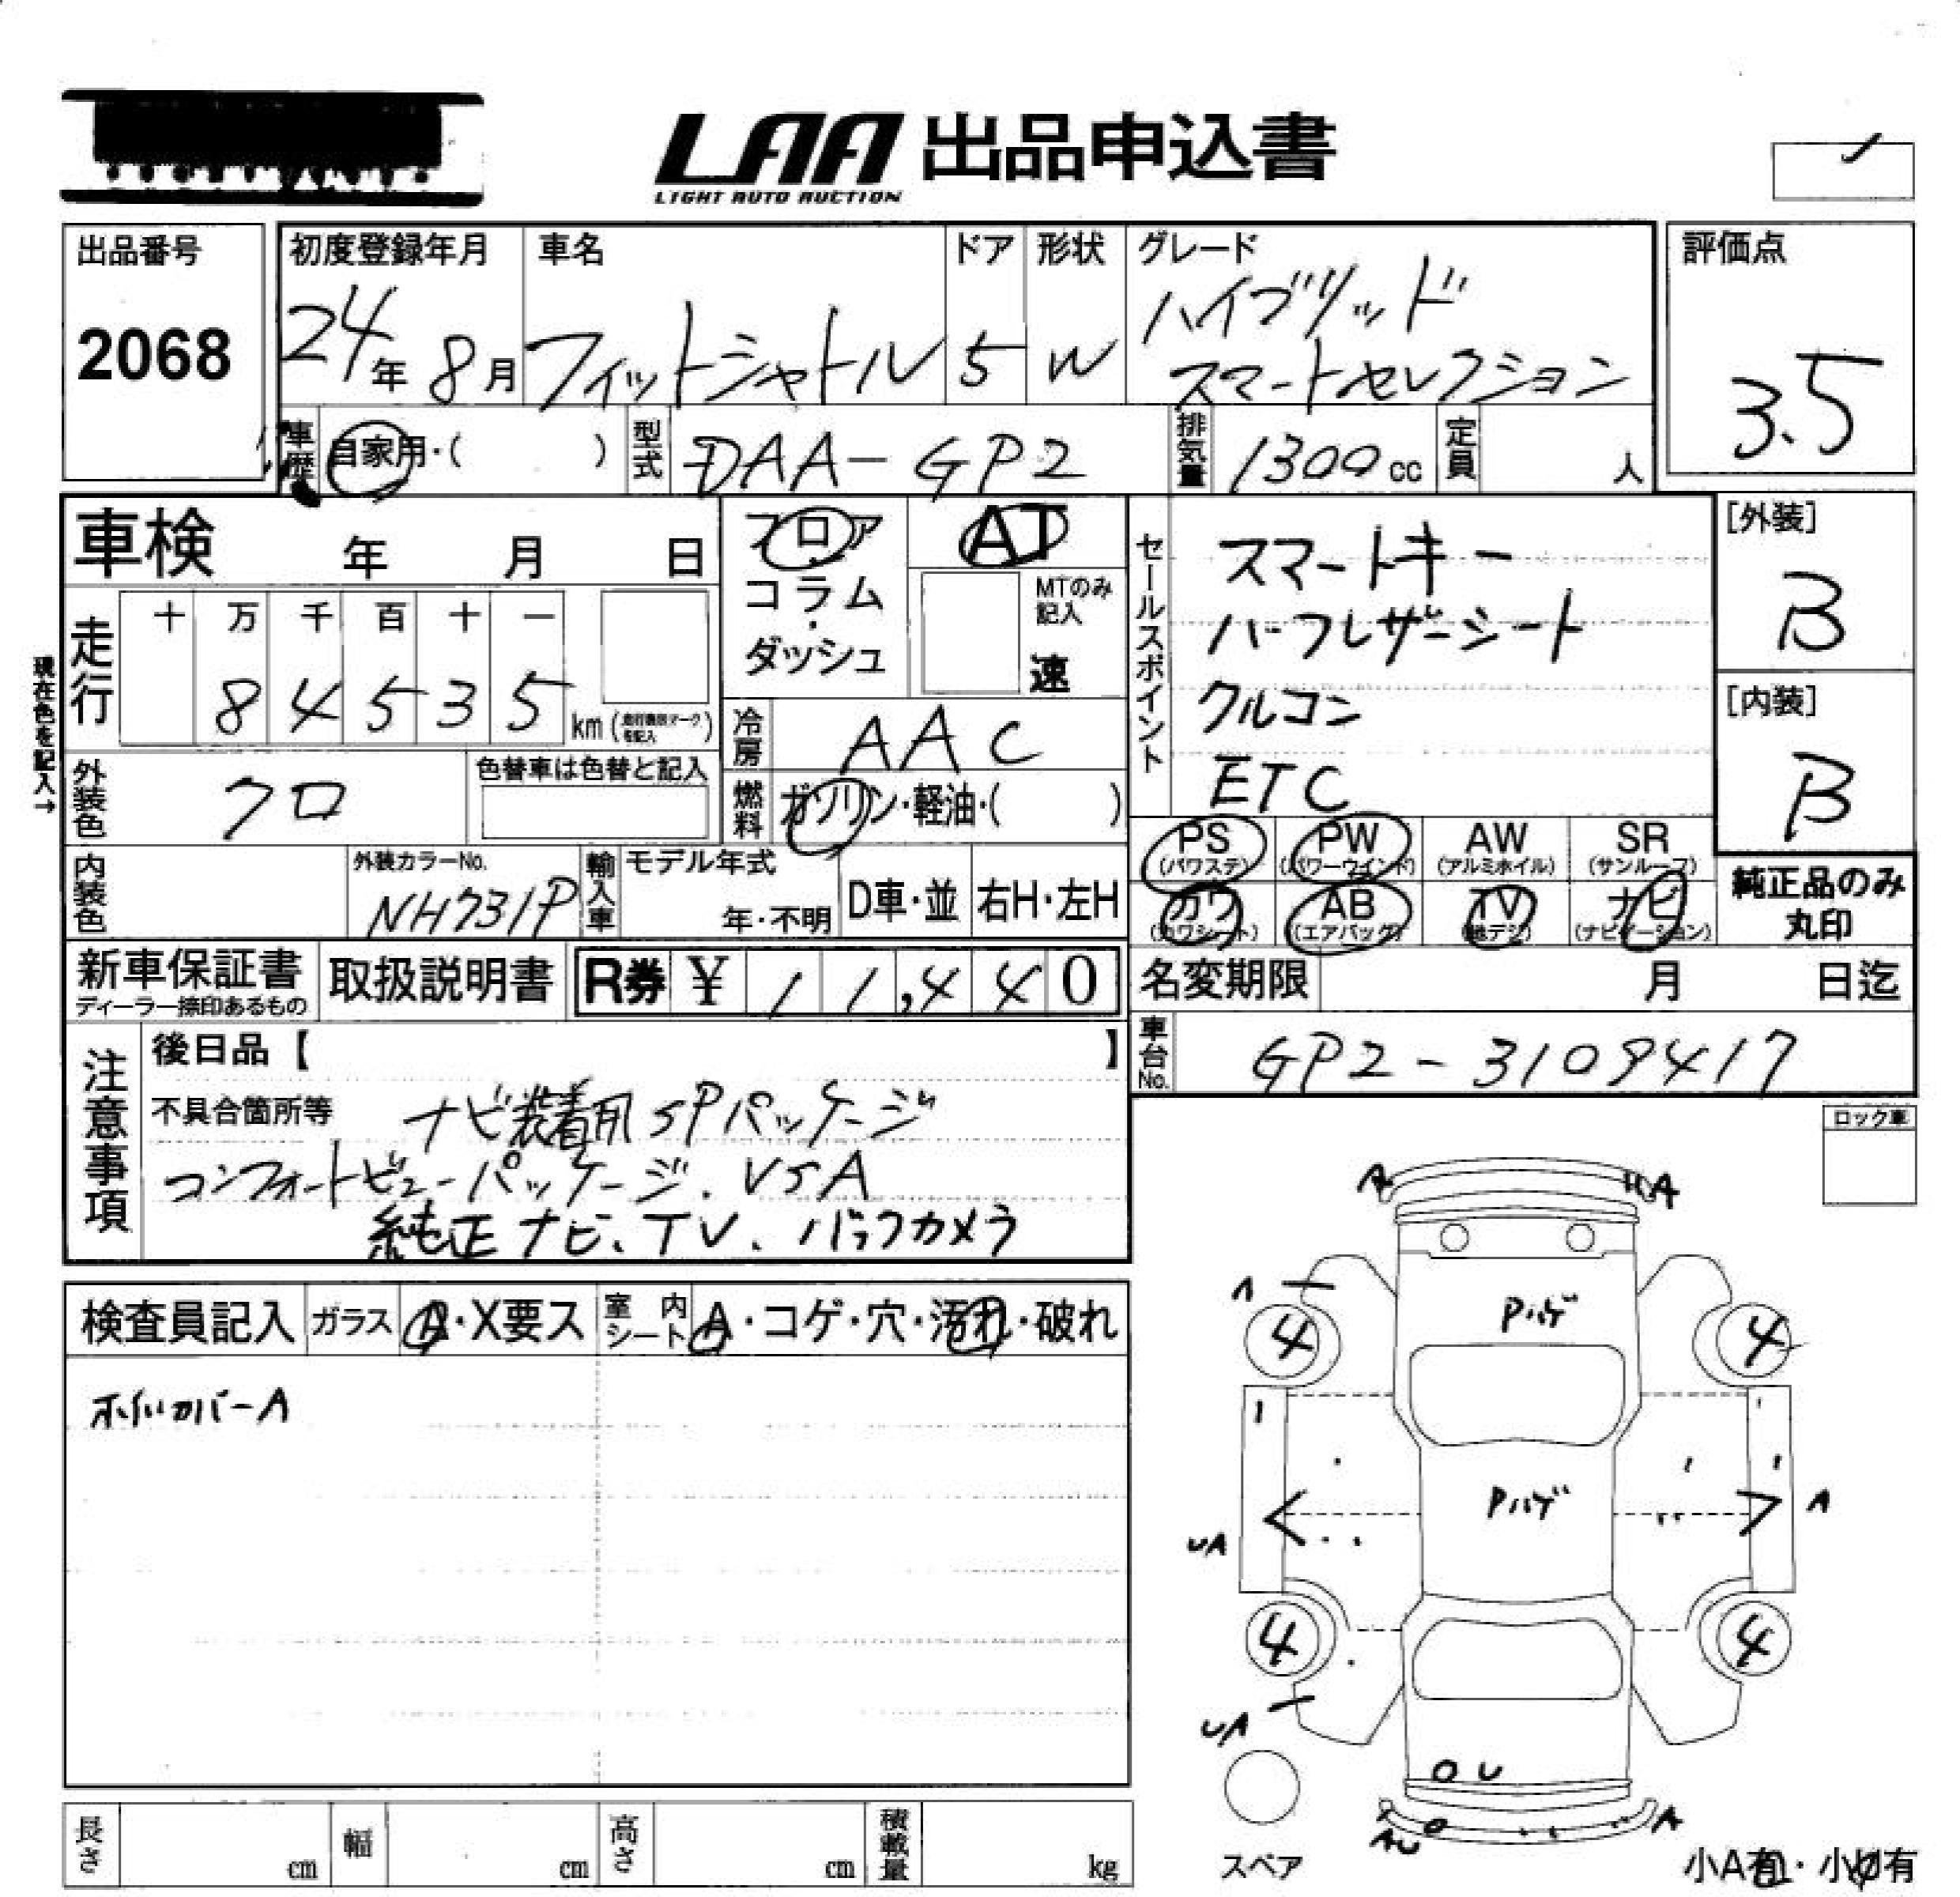 LAA 出品申込書
LIGHT AUTO AUCTION
出品番号
2068
初度登録年月
24年 8月
車名
フィットシャトル
ドア
5
形状
W
グレード
ハイブリッド
スマートセレクション
評価点
3.5
車歴 自家用・( )
型式 DAA-GP2
排気量 1300cc
定員 人
車検 年 月 日
フロア・コラム・ダッシュ
AT
MTのみ記入
速
セールスポイント
スマートキー
ハーフレザーシート
クルコン
ETC
[外装]
B
[内装]
B
現在色を記入→
走行
十 万 千 百 十 一
8 4 5 3 5 km
冷房 AAC
外装色 クロ
色替車は色替と記入
燃料 ガソリン・軽油・( )
PS (パワステ) PW (パワーウインド) AW (アルミホイル) SR (サンルーフ)
カワ (カワシート) AB (エアバッグ) TV (地デジ) ナビ (ナビゲーション)
純正品のみ
丸印
内装色
外装カラーNo.
NH731P
輸入車
モデル年式
年・不明
D車・並 右H・左H
新車保証書
ディーラー捺印あるもの
取扱説明書
R券 ¥ 11,440
名変期限 月 日迄
車台No. GP2-3109417
注意事項
後日品【 】
不具合箇所等 ナビ装着用SPパッケージ
コンフォートビューパッケージ、VSA
純正ナビ、TV、バックカメラ
ロック車
検査員記入 ガラス A・X要ス 室内シート A・コゲ・穴・汚れ・破れ
ホイルカバーA
A A
A
4 4
Pハゲ
Pハゲ
UA A
4 4
UA
U
AU A
スペア
長さ cm 幅 cm 高さ cm 積載量 kg
小A有・小U有